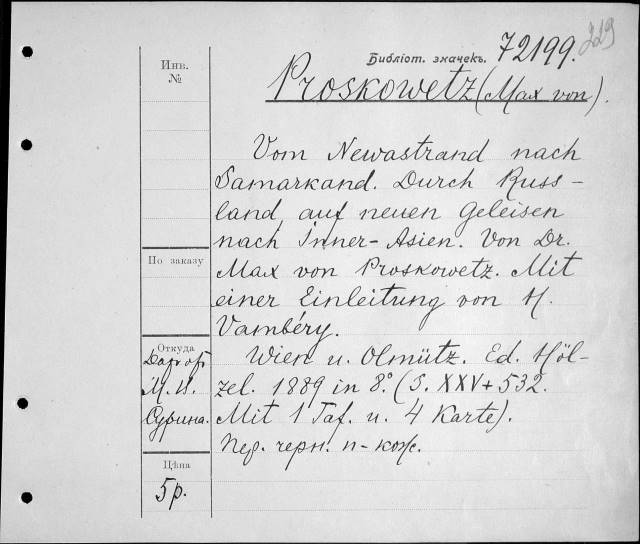 229
Библіот. значекъ. 72199.
Инв.
№
Proskowetz (Max von).
Vom Newastrand nach
Samarkand. Durch Russ-
land, auf neuen Geleisen
nach Inner-Asien. Von Dr.
Max von Proskowetz. Mit
По заказу
einer Einleitung von H.
Vambéry.
Откуда
Wien u. Olmütz. Ed. Höl-
zel. 1889 in 8º. (S. XXV + 532.
Mit 1 Taf. u. 4 Karte).
Пер. черн. п-кож.
Сурина.
Цѣна
5 р.